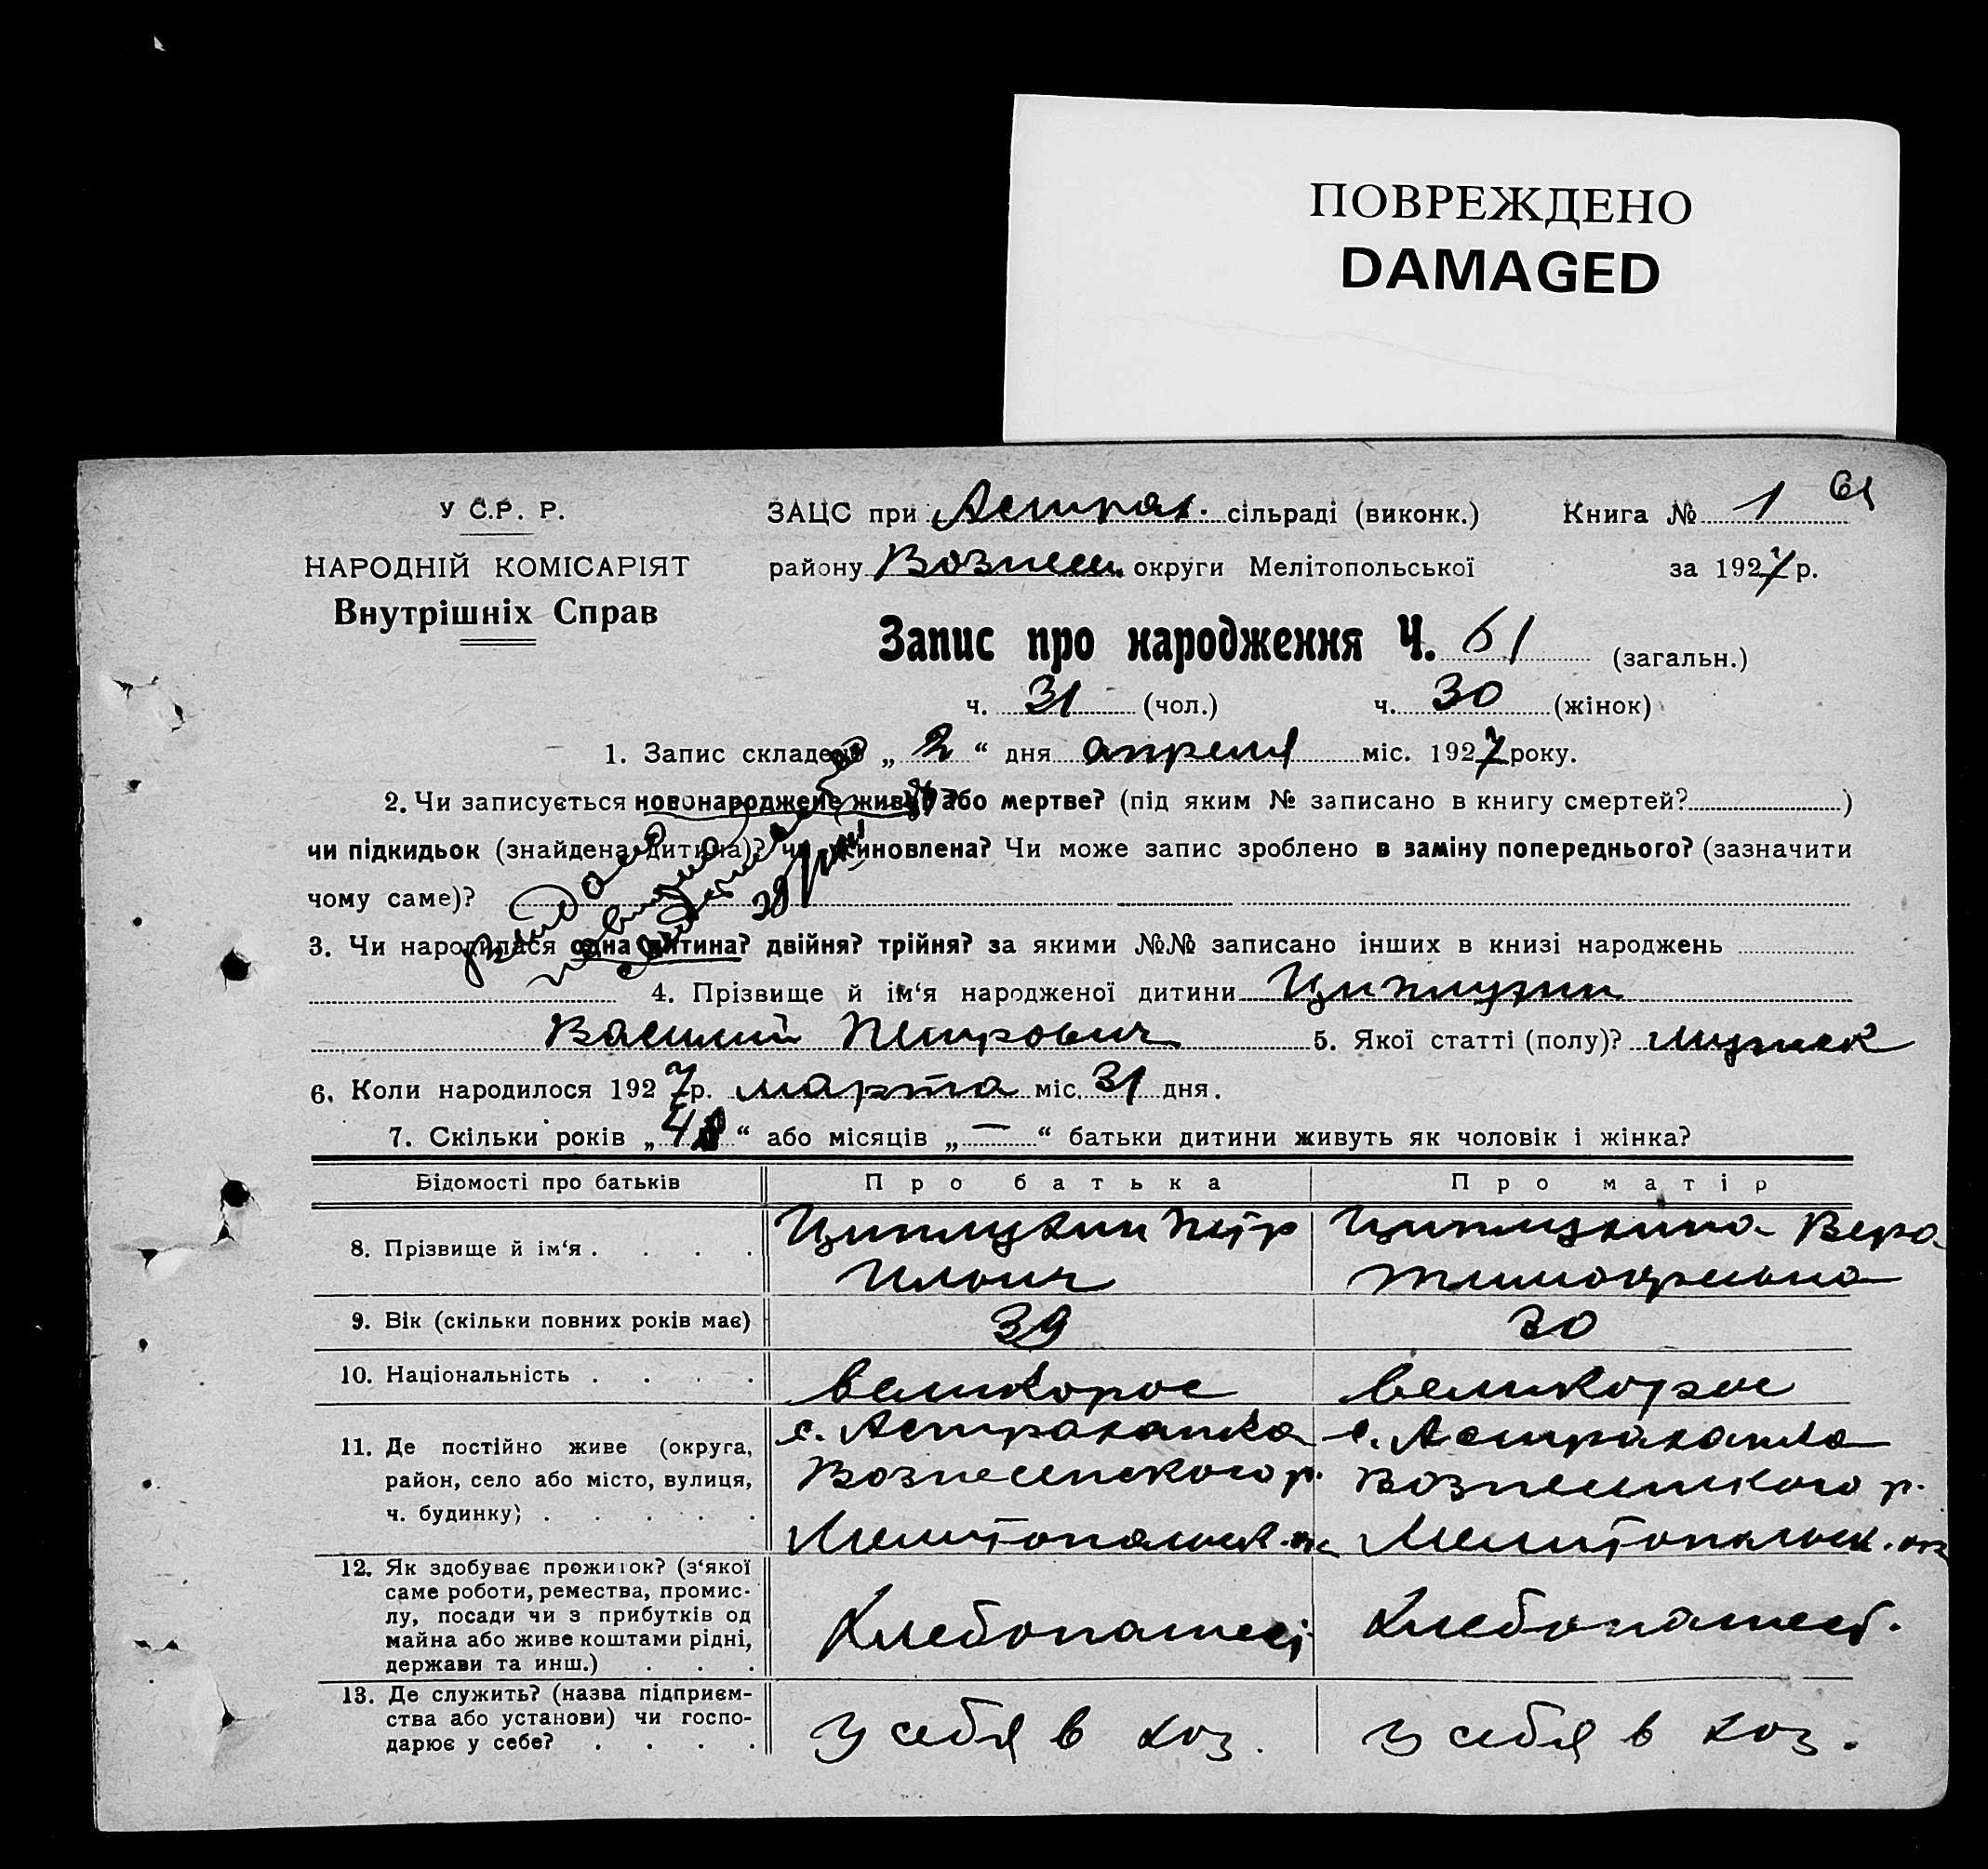 ПОВРЕЖДЕНО
DAMAGED
61
У С.Р. Р.
ЗАЦС при Астрах. сільраді (виконк.) Книга № 1
НАРОДНІЙ КОМІСАРІЯТ
району Вознесен. округи Мелітопольської за 1927 р.
Внутрішніх Справ
Запис про народження Ч. 61 (загальн.)
ч. 31 (чол.) ч. 30 (жінок)
1. Запис складено „ 2 “ дня апреля міс. 1927 року.
2. Чи записується новонароджене живе? або мертве? (під яким № записано в книгу смертей? )
чи підкидьок (знайдена дитина)? чи усиновлена? Чи може запис зроблено в заміну попереднього? (зазначити
чому саме)?
3. Чи народилася одна дитина? двійня? трійня? за якими №№ записано інших в книзі народжень
4. Прізвище й ім‘я народженої дитини
Василий Петрович 5. Якої статті (полу)? мужск
6. Коли народилося 1927 р. марта міс. 31 дня.
7. Скільки років „ 4 “ або місяців „ — “ батьки дитини живуть як чоловік і жінка?
Відомості про батьків Про батька Про матір
8. Прізвище й ім‘я . . . . Петр Вера
9. Вік (скільки повних років має) 39 30
10. Національність . . . . великорос великорос
11. Де постійно живе (округа, с. Астраханка с. Астраханка
район, село або місто, вулиця, Вознесенского р. Вознесенского р.
ч. будинку) . . . . . Мелитопольск. Мелитопольск.
12. Як здобуває прожиток? (з‘якої
саме роботи, ремества, промис-
лу, посади чи з прибутків од
майна або живе коштами рідні, Хлебопашест. Хлебопашест.
держави та инш.) . . .
13. Де служить? (назва підприєм-
ства або установи) чи госпо-
дарює у себе? . . . . У себя в хоз. У себя в хоз.